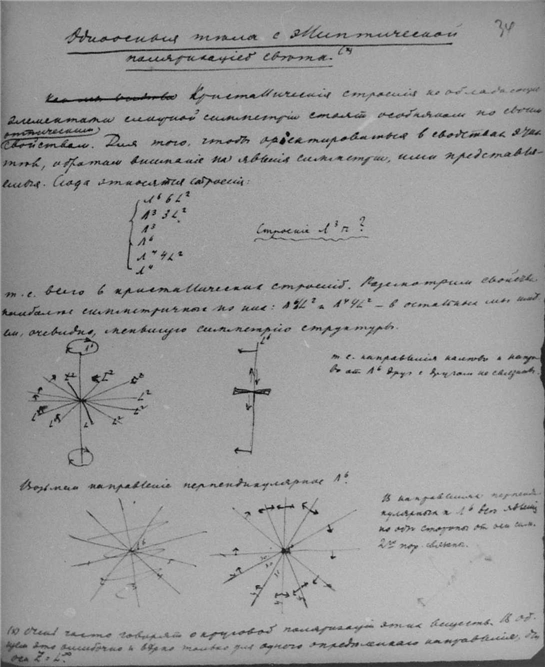 34
Одноосныя тѣла с эллиптической
поляризацiей свѣта. (*)
Кристаллическiя строенiя не обладающiя
элементами сложной симметрiи стоят особняком по своим
оптическим
свойствам. Для того, чтобы орiентироваться в свойствах этих
тѣл, обратим вниманiе на явленiя симметрiи, ими представля-
емыя. Сюда относятся строенiя:
Λ⁶ 6L²
Λ³ 3L²
Λ³
Λ⁶
Λ⁴ 4L²
Λ⁴
Строенiе Λ³ π?
т.е. всего 6 кристаллических строенiй. Разсмотрим свойства
наиболѣе симметричных из них: Λ⁶6L² и Λ⁴4L² – в остальных мы
очевидно, меньшую симметрiю структуры.
т.е. направленiя
от Λ⁶ друг с другом не связаны.
Возьмем направленiе перпендикулярное Λ⁶.
В направленiях перпенди-
кулярных к Λ⁶ явленiя
по обѣ стороны от оси сим.
2го пор.
(*) Очень часто говорят о круговой поляризацiи этих веществ. В об-
щем это ошибочно и вѣрно только для одного опредѣленнаго направленiя, для
оси